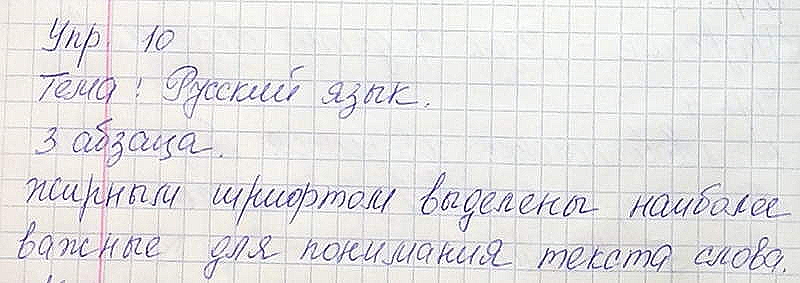 Упр. 10
Тема: Русский язык.
3 абзаца.
жирным шрифтом выделены наиболее
важные для понимания текста слова.